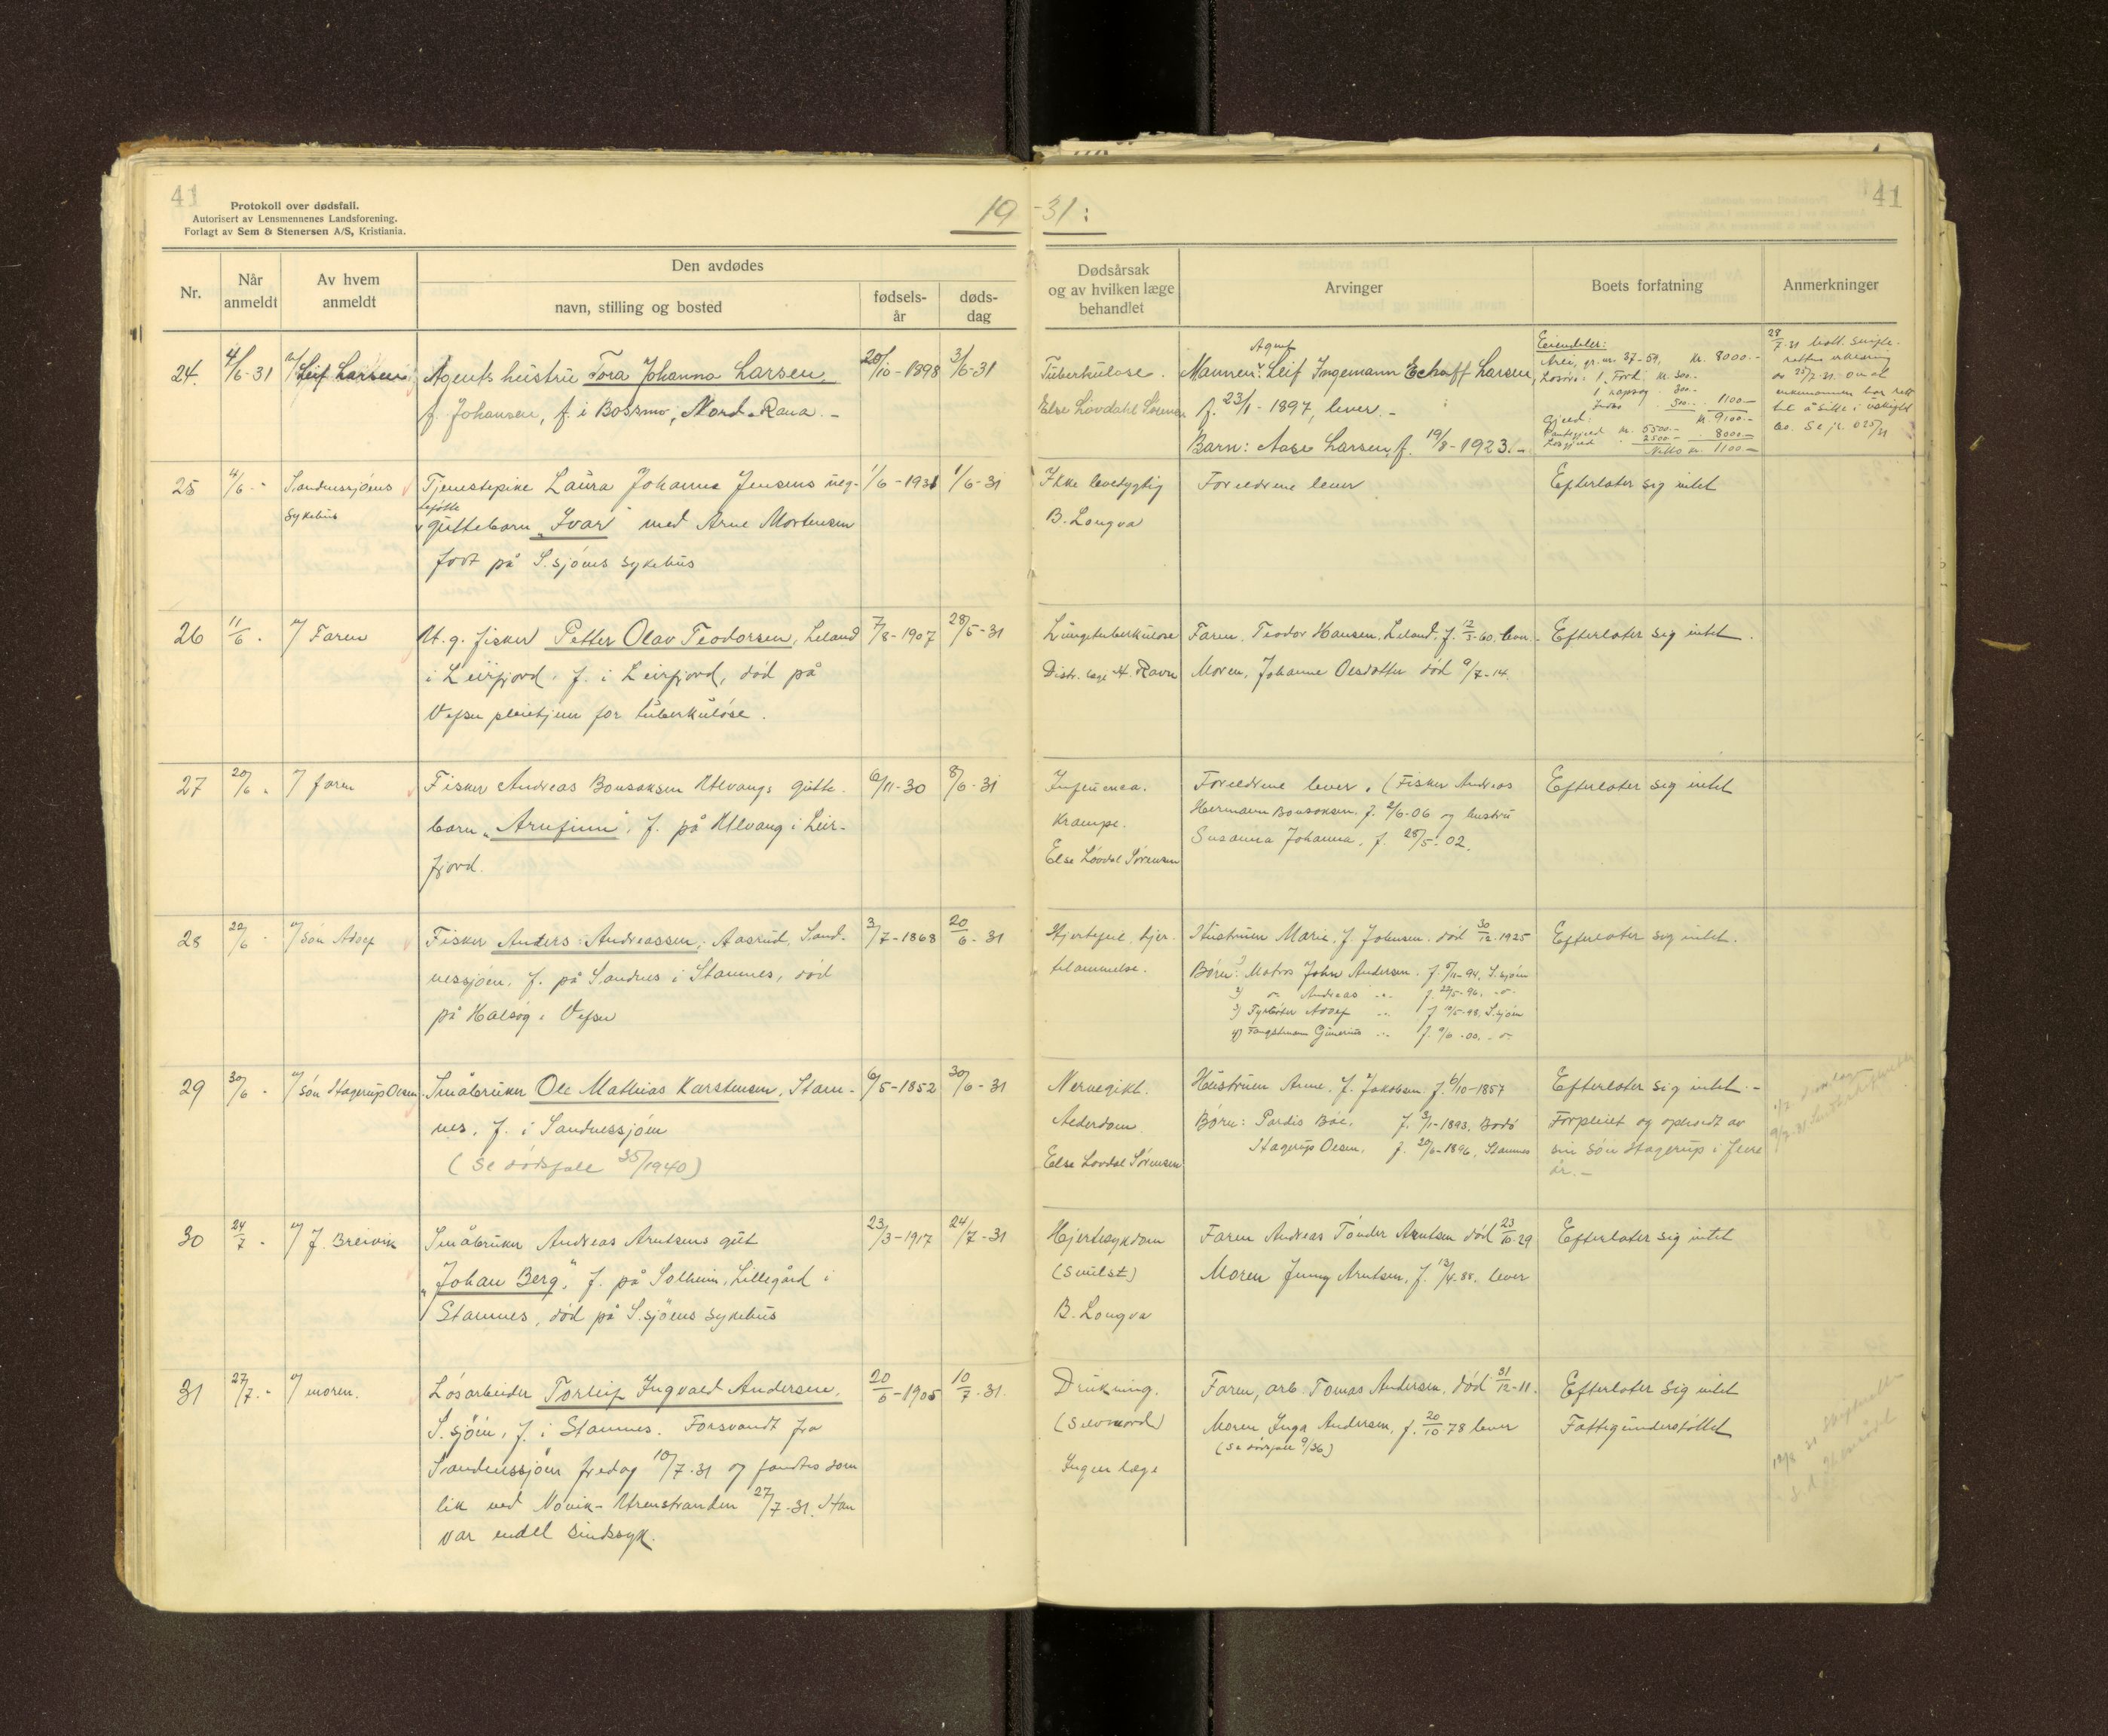 41
Protokoll over dødsfall.
Autorisert av Lensmennenes Landsforening.
Forlagt av Sem & Stenersen A/S, Kristiania.
19 -31:
41
Nr.
Når anmeldt
Av hvem anmeldt
Den avdødes
navn, stilling og bosted
fødsels-år
døds-dag
Dødsårsak og av hvilken læge behandlet
Arvinger
Boets forfatning
Anmerkninger
24.
4/6-31
v/ Leif Larsen
Agents hustru Tora Johanna Larsen,
f. Johansen, f. i Bossmo, Nord-Rana. -
20/10-1898
3/6-31
Tuberkulose.
Else Lövdahl Sörensen
Agent
Mannen: Leif Ingemann Echoff Larsen,
f. 23/1-1897, lever. -
Barn: Aase Larsen, f. 19/8-1923. -
Eiendeler:
gr.nr. 37-59, kr. 8000.-
Lösöre: 1 Ford kr. 300.-
1 300.-
Indbo 500.- 1100.-
Gjeld: kr. 9100.-
Pantegjeld kr. 5500.-
Lösgjeld 2500.- 8000.-
Netto kr. 1100.-
28/7-31 mott. skifte-
rettens erklæring
av 25/7-31 om at
enkemannen har rett
til å sitte i uskiftet
bo. Se jr. 625/31
25
4/6 -"
Sandnessjöens
Sykehus
Tjenestepike Laura Johanna Jensens ueg-
tefötte
guttebarn "Ivar" med Arne Mortensen
född på S.sjöens sykehus
1/6-1931
1/6-31
Ikke levedygtig
B. Longva
Foreldrene lever
Efterlater sig intet
26
11/6 -
v/ Faren
U.g. fisker Petter Olav Teodorsen, Leland
i Leirfjord. f. i Leirfjord, död på
Vefsn pleiehjem for tuberkulöse.
7/8-1907
28/5-31
Lungetuberkulose
Distr. læge H. Ravn
Faren, Teodor Hansen, Leland, f. 12/3-60, lever.
Moren, Johanne Olsdotter död 9/7-14.
Efterlater sig intet.
27
20/6 "
v/ faren
Fisker Andreas Bonsaksen Ulvangs gutte-
barn "Arnfinn", f. på Ulvang i Leir-
fjord.
6/11-30
8/6-31
Influenca.
Krampe.
Else Lövdal Sörensen
Foreldrene lever. (Fisker Andreas
Hermann Bonsaksen, f. 2/6-06 og hustru
Susanna Johanna, f. 28/5-02.
Efterlater sig intet
28
22/6 -
v/ sön Adolf
Fisker Anders Andreassen, Aasrud, Sand-
nessjöen, f. på Sandnes i Stamnes, död
på Halsöy i Vefsn
3/7-1868
20/6-31
Hjertefeil, hjer-
Hustruen Marie, f. Johnsen, död 30/12-1925
Börn: 1) Matros John Andersen, f. 5/11-94, S.sjöen
2) -"- Andreas -"- f. 22/5-96. -"-
3) Fyrböter Adolf -"- f. 10/5-98, S.sjöen
4) Fangstmann -"- f. 9/6-00. -"-
Efterlater sig intet.
29
30/6 -
v/ sön Hagerup Olsen
Småbruker Ole Mathias Karstensen, Stam-
nes, f. i Sandnessjöen
(Se dödsfall 35/1940)
6/5-1852
30/6-31
Nervegikt.
Alderdom.
Else Lövdal Sörensen
Hustruen Anne, f. Jakobsen, f. 6/10-1857
Börn: Pardis Böe, f. 3/1-1893, Bodö
Hagerup Olsen, f. 20/6-1896, Stamnes
Efterlater sig intet. -
Forpleiet og opholdt av
sin sön Hagerup i flere
år. -
30
24/7 -
v/ J. Breivik
Småbruker Andreas Arntsens gut
"Johan Berg", f. på Solheim, Lillegård i
Stamnes, död på S.sjöens sykehus
23/3-1917
24/7-31
Hjertesykdom
(Svulst)
B. Longva
Faren Andreas Tönder Arntsen död 23/10-29
Moren Jenny Arntsen, f. 12/4-88, lever
Efterlater sig intet
31
27/7 -"
v/ moren.
Lösarbeider Torleif Ingvald Andersen,
S.sjöen, f. i Stamnes. Forsvandt fra
Sandnessjöen fredag 10/7-31 og fandtes som
lik ved Novik-Urenstranden 27/7-31. Han
var endel sindssyk.
20/6-1905
10/7-31
Drukning.
(Selvmord)
Ingen læge
Faren, arb. Tomas Andersen, död 31/12-11.
Moren Inga Andersen, f. 20/10 78 lever
(Se dödsfall 9/36)
Efterlater sig intet
Fattigunderstöttet